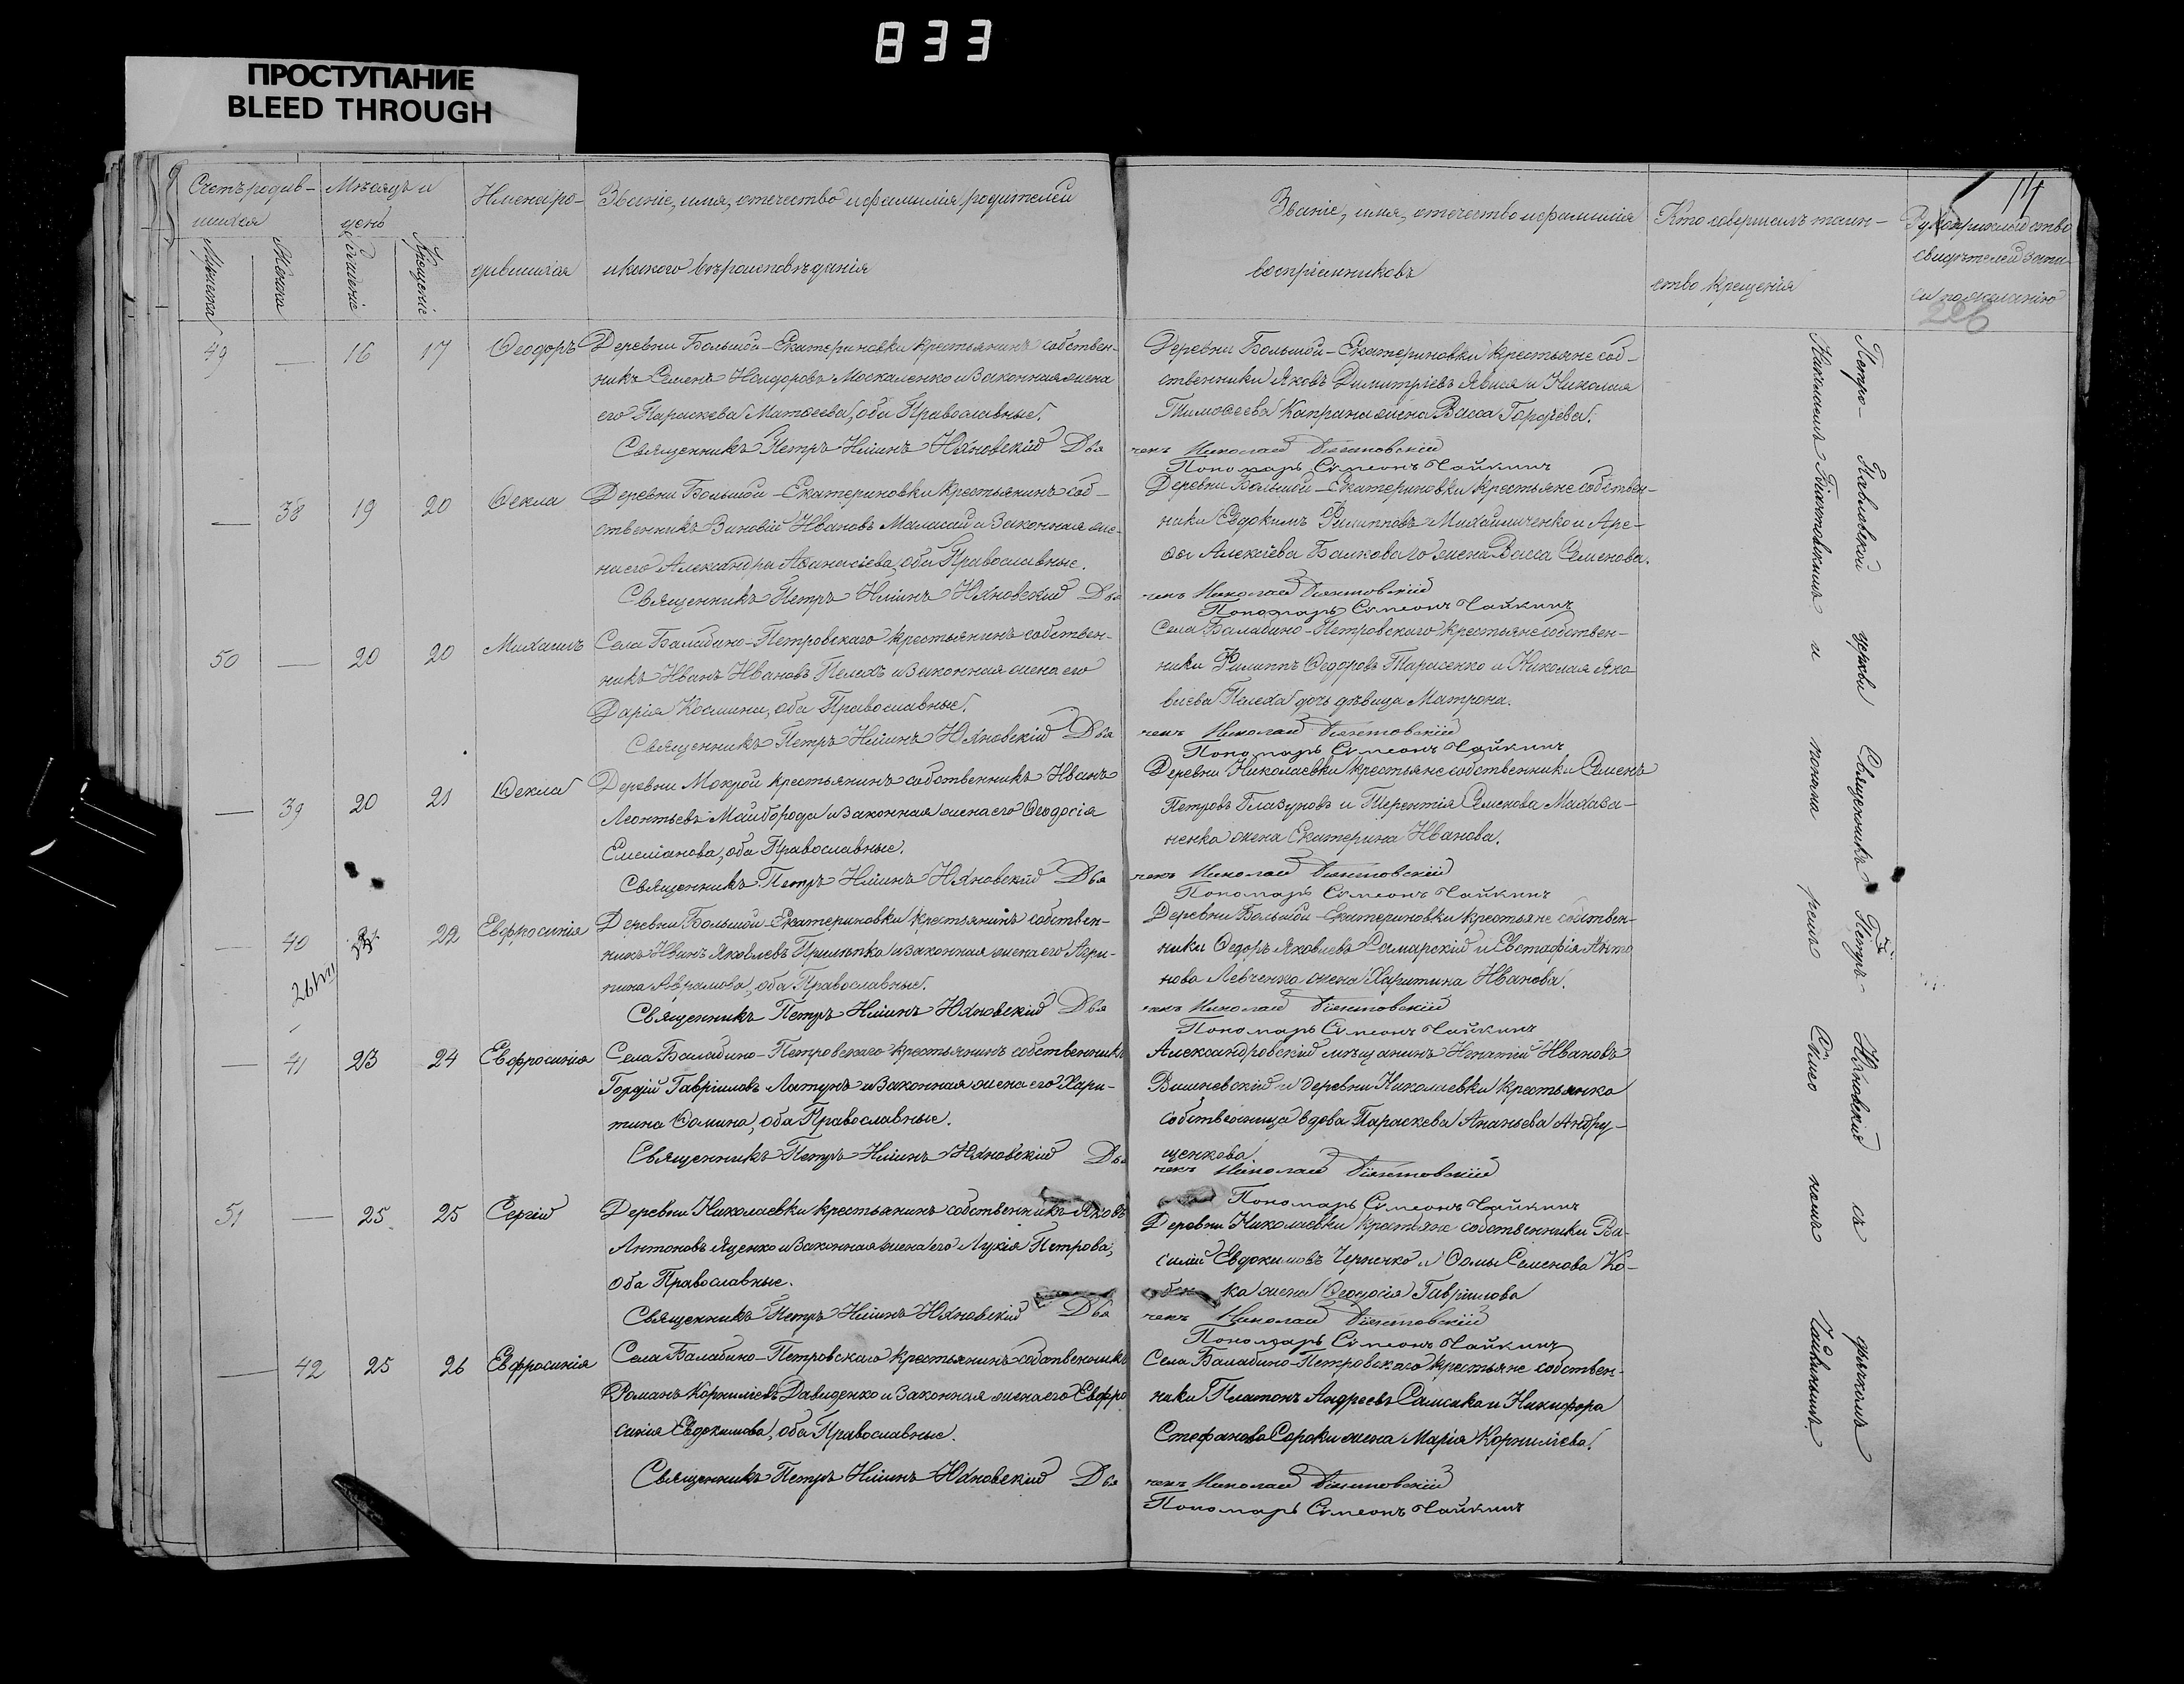 833
ПРОСТУПАНИЕ
BLEED THROUGH
114
226
Счетъ родив-
шихся
Мѣсяцъ и
день
Имена ро-
дившихся
Званіе, имя, отечество и фамилія родителей
и какого вѣроисповѣданія
Званіе, имя, отечество и фамилія
воспріемниковъ
Кто совершилъ таин-
ство крещенія
Рукоприкладство
свидѣтелей запи-
си по желанію
Мужеска
Женска
Рожденіе
Крещеніе
49 — 16 17 Ѳеодоръ
Деревни Большой-Екатериновки крестьянинъ собствен-
никъ Семенъ Исидоровъ Москаленко и законная жена
его Параскева Матѳеева, оба Православные.
Священникъ Петръ Юхновскій Дья
Деревни Большой-Екатериновки крестьяне соб-
ственники Яковъ Димитріевъ и Николая
Тимоѳеева жена Васса Гордѣева.
чекъ Николай
Пономарь Симеонъ Чайкинъ
— 38 19 20 Ѳекла
Деревни Большой-Екатериновки крестьянинъ соб-
ственникъ Зиновій Ивановъ и законная же-
на его Александра Аѳанасіева, оба Православные.
Священникъ Петръ Юхновскій Дья
Деревни Большой-Екатериновки крестьяне собствен-
ники Евдокимъ Филипповъ Михайличенко и Аре-
ѳы Алексіева жена Васса Семенова.
чекъ Николай
Пономарь Симеонъ Чайкинъ
50 — 20 20 Михаилъ
Села Балабино-Петровскаго крестьянинъ собствен-
никъ Иванъ Ивановъ Пелехъ и законная жена его
Дарія Космина, оба Православные.
Священникъ Петръ Юхновскій Дья
Села Балабино-Петровскаго крестьяне собствен-
ники Филиппъ Ѳедоровъ Тарасенко и Николая Яко
влева Пелеха дочь дѣвица Матрона.
чекъ Николай
Пономарь Симеонъ Чайкинъ
— 39 20 21 Ѳекла
Деревни Мокрой крестьянинъ собственникъ Иванъ
Леонтьевъ Майборода и законная жена его Ѳеодосія
Емеліанова, оба Православные.
Священникъ Петръ Юхновскій Дья
Деревни Николаевки крестьяне собственники Семенъ
Петровъ Глазуновъ и Терентія Семенова
ненка жена Екатерина Иванова.
чекъ Николай
Пономарь Симеонъ Чайкинъ
— 40 22 Евфросинія
Деревни Большой-Екатериновки крестьянинъ собствен-
никъ Иванъ Яковлевъ и законная жена его Агри-
пина Аврамова, оба Православные.
Священникъ Петръ Юхновскій Дья
Деревни Большой-Екатериновки крестьяне собствен-
ники Ѳедоръ Яковлевъ Самарскій и Евстафія Анто
нова Левченко жена Харитина Иванова.
чекъ Николай
Пономарь Симеонъ Чайкинъ
— 41 23 24 Евфросинія
Села Балабино-Петровскаго крестьянинъ собственникъ
Гордій Гавріиловъ Латунъ и законная жена его Хари-
тина Ѳомина, оба Православные.
Священникъ Петръ Юхновскій Дья
Александровскій мѣщанинъ Игнатій Ивановъ
Вишневскій и деревни Николаевки крестьянка
собственница вдова Параскева Ананьева Андру-
щенкова
чекъ Николай
Пономарь Симеонъ Чайкинъ
51 — 25 25 Сергій
Деревни Николаевки крестьянинъ собственникъ Яковъ
Антоновъ Яценко и законная жена его Лукія Петрова,
оба Православные.
Священникъ Петръ Юхновскій Дья
Деревни Николаевки крестьяне собственники Ва-
силій Евдокимовъ и Ѳомы Семенова Ко-
ка жена Ѳеодосія Гавріилова
чекъ Николай
Пономарь Симеонъ Чайкинъ
— 42 25 26 Евфросинія
Села Балабино-Петровскаго крестьянинъ собственникъ
Романъ Корниліевъ Давиденко и законная жена его Евфро
синія Евдокимова, оба Православные.
Священникъ Петръ Юхновскій Дья
Села Балабино-Петровскаго крестьяне собствен-
ники Платонъ Андреевъ и Никифора
Стефанова Сороки жена Марія Корниліева.
чекъ Николай
Пономарь Симеонъ Чайкинъ
Петро-Павловской церкви Священникъ Петръ Юхновскій съ дьячкомъ
Николаемъ и пономаремъ Симеономъ Чайкинымъ